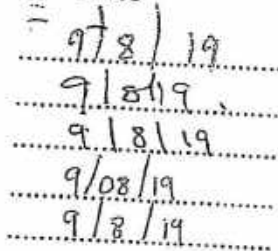 9/8/19
9/8/19.
9/8/19
9/08/19
9/8/19